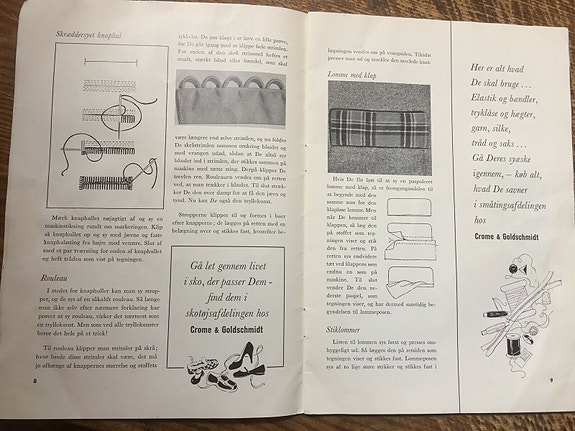 Skræddersyet knaphul
Mærk knaphullet nøjagtigt af og sy en
maskinstikning rundt om markeringen. Klip
så knaphullet op og sy med jævne og faste
knaphulssting fra højre mod venstre. Slut af
med et par tværsting for enden af knaphullet
og heft tråden som vist på tegningen.
Rouleau
I stedet for knaphuller kan man sy stropper,
og de sys af en såkaldt rouleau. Så længe
man ikke selv efter nærmere forklaring har
prøvet at sy rouleau, virker det nærmest som
en tryllekunst. Men som ved alle tryllekunster
beror det hele på et trick!
Til rouleau klipper man strimler på skrå;
hvor brede disse strimler skal være, det må
jo afhænge af knappernes størrelse og stoffets
8
tykkelse. De gør klogt i at lave en lille prøve,
før De går igang med at klippe hele strimlen.
For enden af den skrå strimmel heftes et
smalt, stærkt bånd eller bændel, som skal
være længere end selve strimlen, og nu folder
De skråstrimlen sammen omkring båndet og
med vrangen udad, sådan at De altså syr
båndet ind i strimlen, der stikkes sammen på
maskine med tætte sting. Derpå klipper De
trevlen ren. Rouleauen vendes om på retten
ved, at man trækker i båndet. Til slut strækker
De den over damp for at få den jævn og
tynd. Nu kan De også den tryllekunst.
Stropperne klippes til og formes i buer
efter knapperne; de lægges på retten med en
belægning over og stikkes fast, hvorefter be-
Gå let gennem livet
i sko, der passer Dem -
find dem i
skotøjsafdelingen hos
Crome & Goldschmidt
lægningen vendes om på vrangsiden. Tilsidst
presser man ud og stikker den nederste kant.
Lomme med klap
Hvis De får lyst til at sy en paspoleret
lomme med klap, så er fremgangsmåden til
at begynde
med den samme
som for den
klapløse lomme. Men
når De kommer til
klappen, så læg den
på stoffet som tegningen
viser og stik
den fra retten. På
retten sys endvidere
tæt ved klappens
endnu en søm på
maskine. Til slut
vender De den nederste
paspel, som
tegningen viser, og har dermed samtidig begyndelsen
til lommeposen.
Stiklommer
Listen til lommen sys først og presses omhyggeligt
ud. Så lægges den på retsiden som
tegningen viser og stikkes fast. Lommeposen
sys af to lige store stykker og stikkes fast i
Her er alt hvad
De skal bruge . . .
Elastik og bændler,
tryklåse og hægter,
garn, silke,
tråd og saks . . .
Gå Deres syeske
igennem, – køb alt,
hvad De savner
i småtingsafdelingen
hos
Crome & Goldschmidt
9